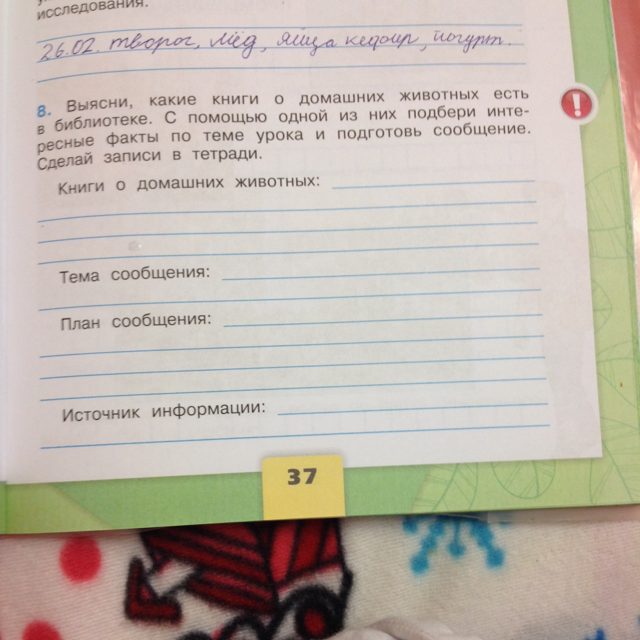 исследования.
26.02. творог, мёд, яйца кефир, йогурт.
8. Выясни, какие книги о домашних животных есть
в библиотеке. С помощью одной из них подбери инте-
ресные факты по теме урока и подготовь сообщение.
Сделай записи в тетради.
Книги о домашних животных:
Тема сообщения:
План сообщения:
Источник информации:
37